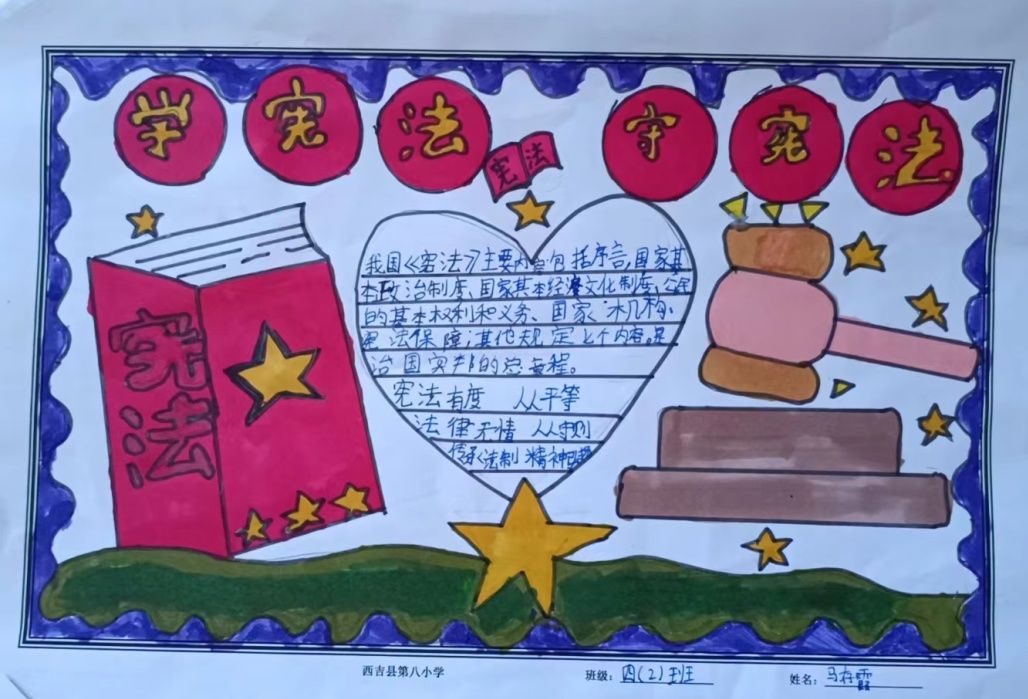 学宪法 守宪法
宪法
宪法
我国《宪法》主要内容包括序言,国家基
本政治制度、国家基本经济文化制度、公民
的基本权利和义务、国家 机构。
宪法保障;其他规定七个内容。是
治国安邦的总章程。
宪法有度 人人平等
法律无情 人人守则
传承法制 精神
西吉县第八小学
班级:四(2)班
姓名:马